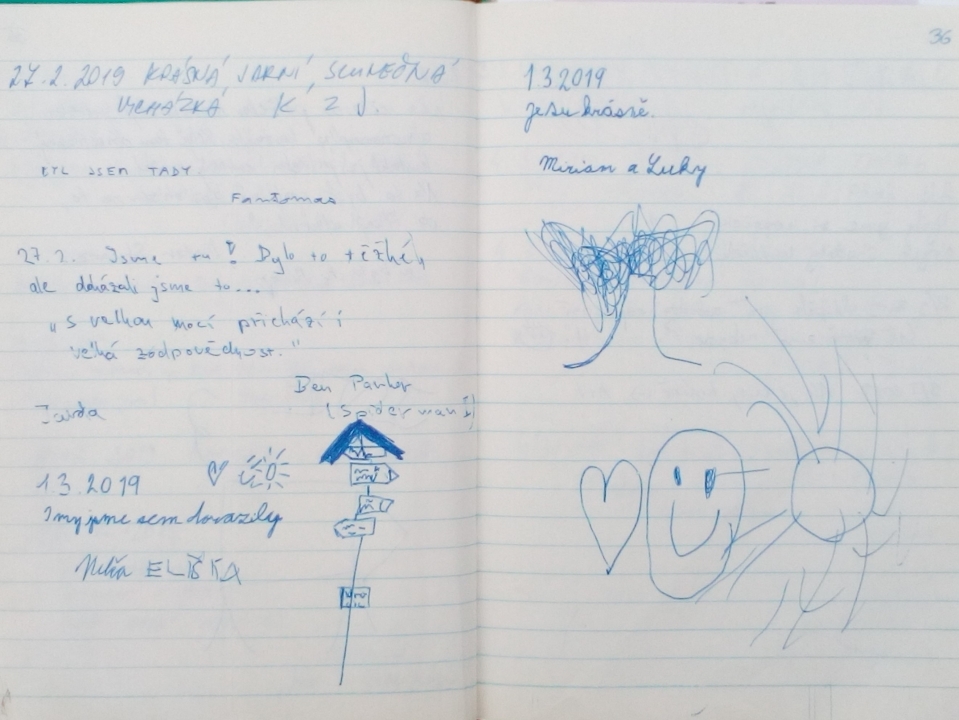 27.2.2019 KRÁSNÁ JARNÍ, SLUNEČNÁ
VYCHÁZKA K Z J.
BYL JSEM TADY
Fantomas
27.2. Jsme tu! Bylo to těžké,
ale dokázali jsme to...
"S velkou mocí přichází i
velká zodpovědnost."
Ben Parker
(Spiderman I)
Jarda
1.3.2019
I my jsme sem dorazily
ELIŠKA
36
1.3.2019
Je tu krásně.
Mirian a Luky